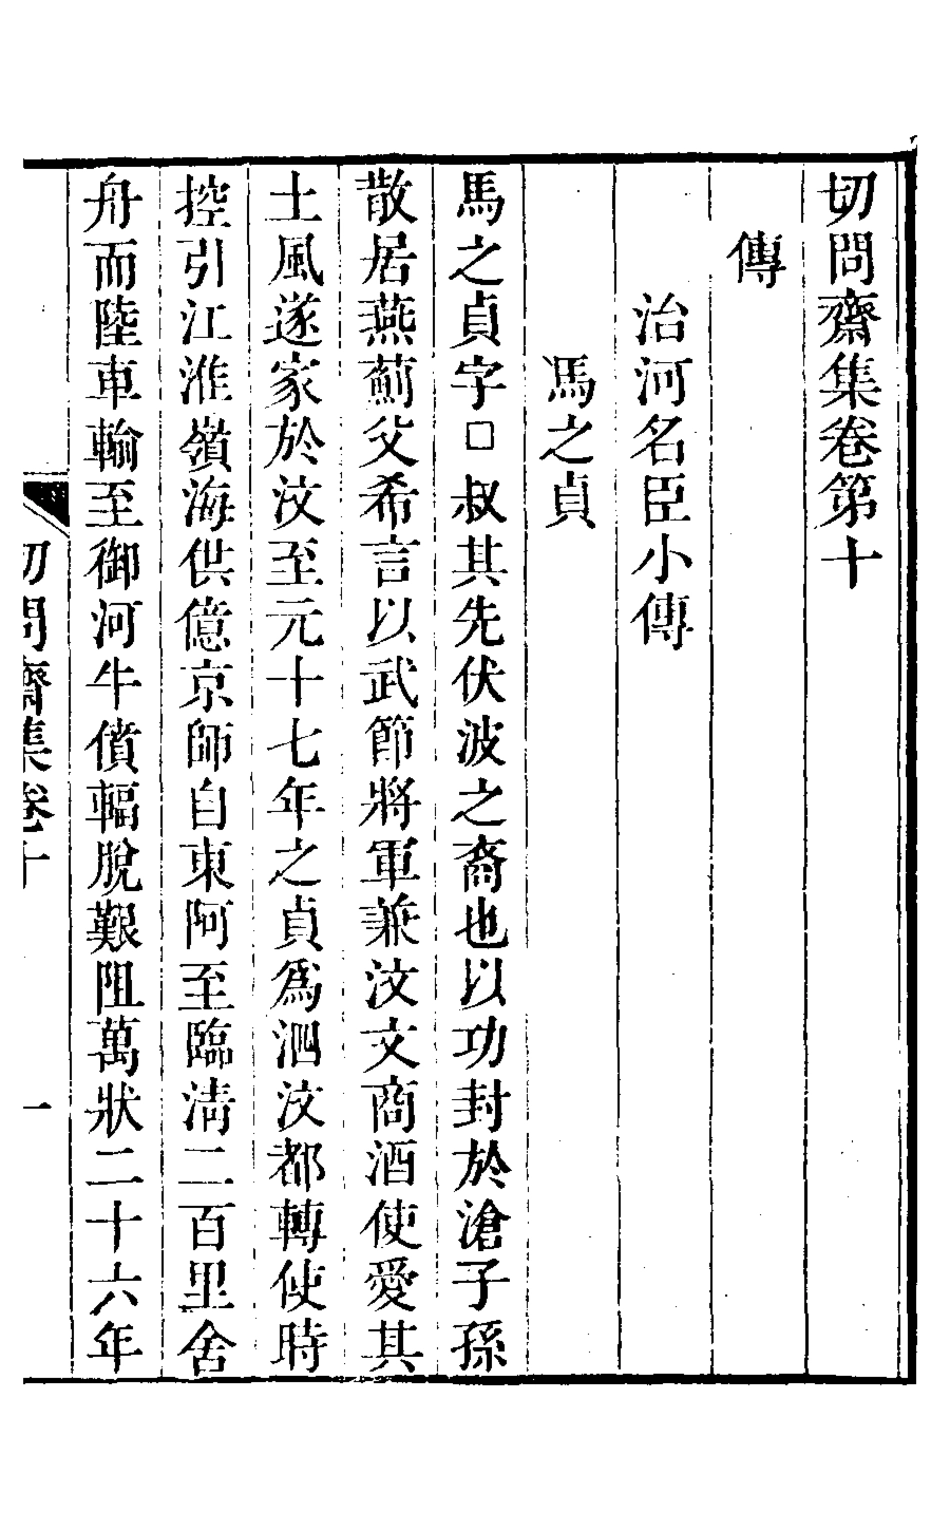 切問齋集卷第十
傳
治河名臣小傳
馬之貞
馬之貞字□叔其先伏波之裔也以功封於滄子孫
散居燕薊父希言以武節將軍兼汶文商酒使愛其
土風遂家於汶至元十七年之貞爲泗汶都轉使時
控引江淮嶺海供億京師自東阿至臨淸二百里舍
舟而陸車輸至御河牛僨輻脫艱阻萬狀二十六年
切問齋集卷十
一